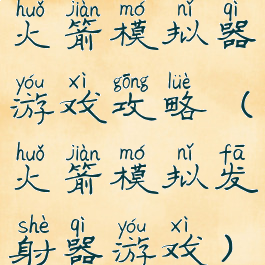 huǒ jiàn mó nǐ qì
火箭模拟器
yóu xì gōng lüè
游戏攻略（
huǒ jiàn mó nǐ fā
火箭模拟发
shè qì yóu xì
射器游戏）